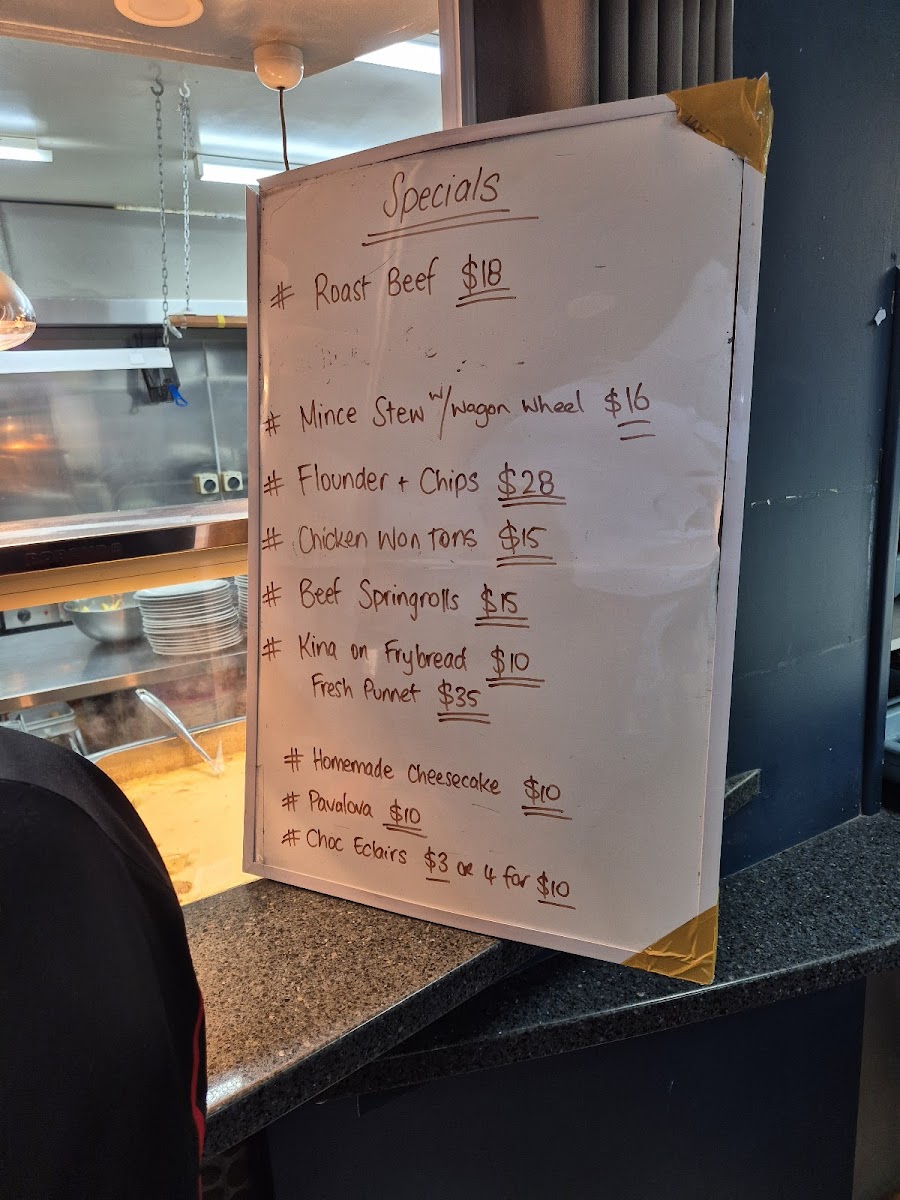 Specials
# Roast Beef $18
# Mince Stew w/ Wagon Wheel $16
# Flounder + Chips $28
# Chicken Won Tons $15
# Beef Springrolls $15
# Kina on Frybread $10
Fresh Punnet $35
# Homemade Cheesecake $10
# Pavalova $10
# Choc Eclairs $3 or 4 for $10